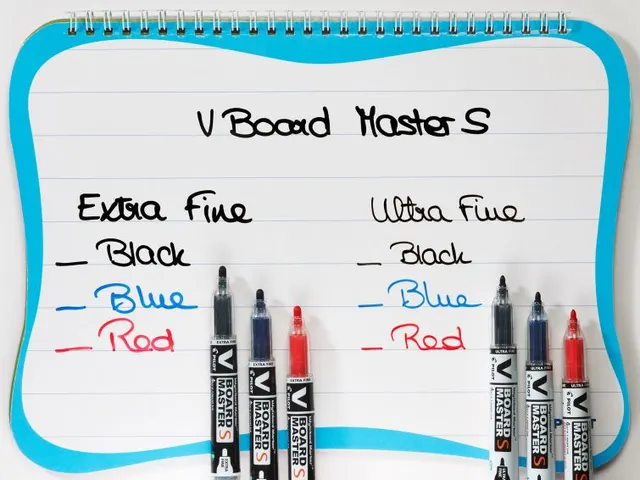 V Board Master S
Extra Fine
_ Black
_ Blue
_ Red
Ultra Fine
_ Black
_ Blue
_ Red
EXTRA FINE
V BOARD MASTER S
PILOT
EXTRA FINE
V BOARD MASTER S
PILOT
EXTRA FINE
V BOARD MASTER S
PILOT
ULTRA FINE
V BOARD MASTER S
PILOT
ULTRA FINE
V BOARD MASTER S
PILOT
ULTRA FINE
V BOARD MASTER S
PILOT